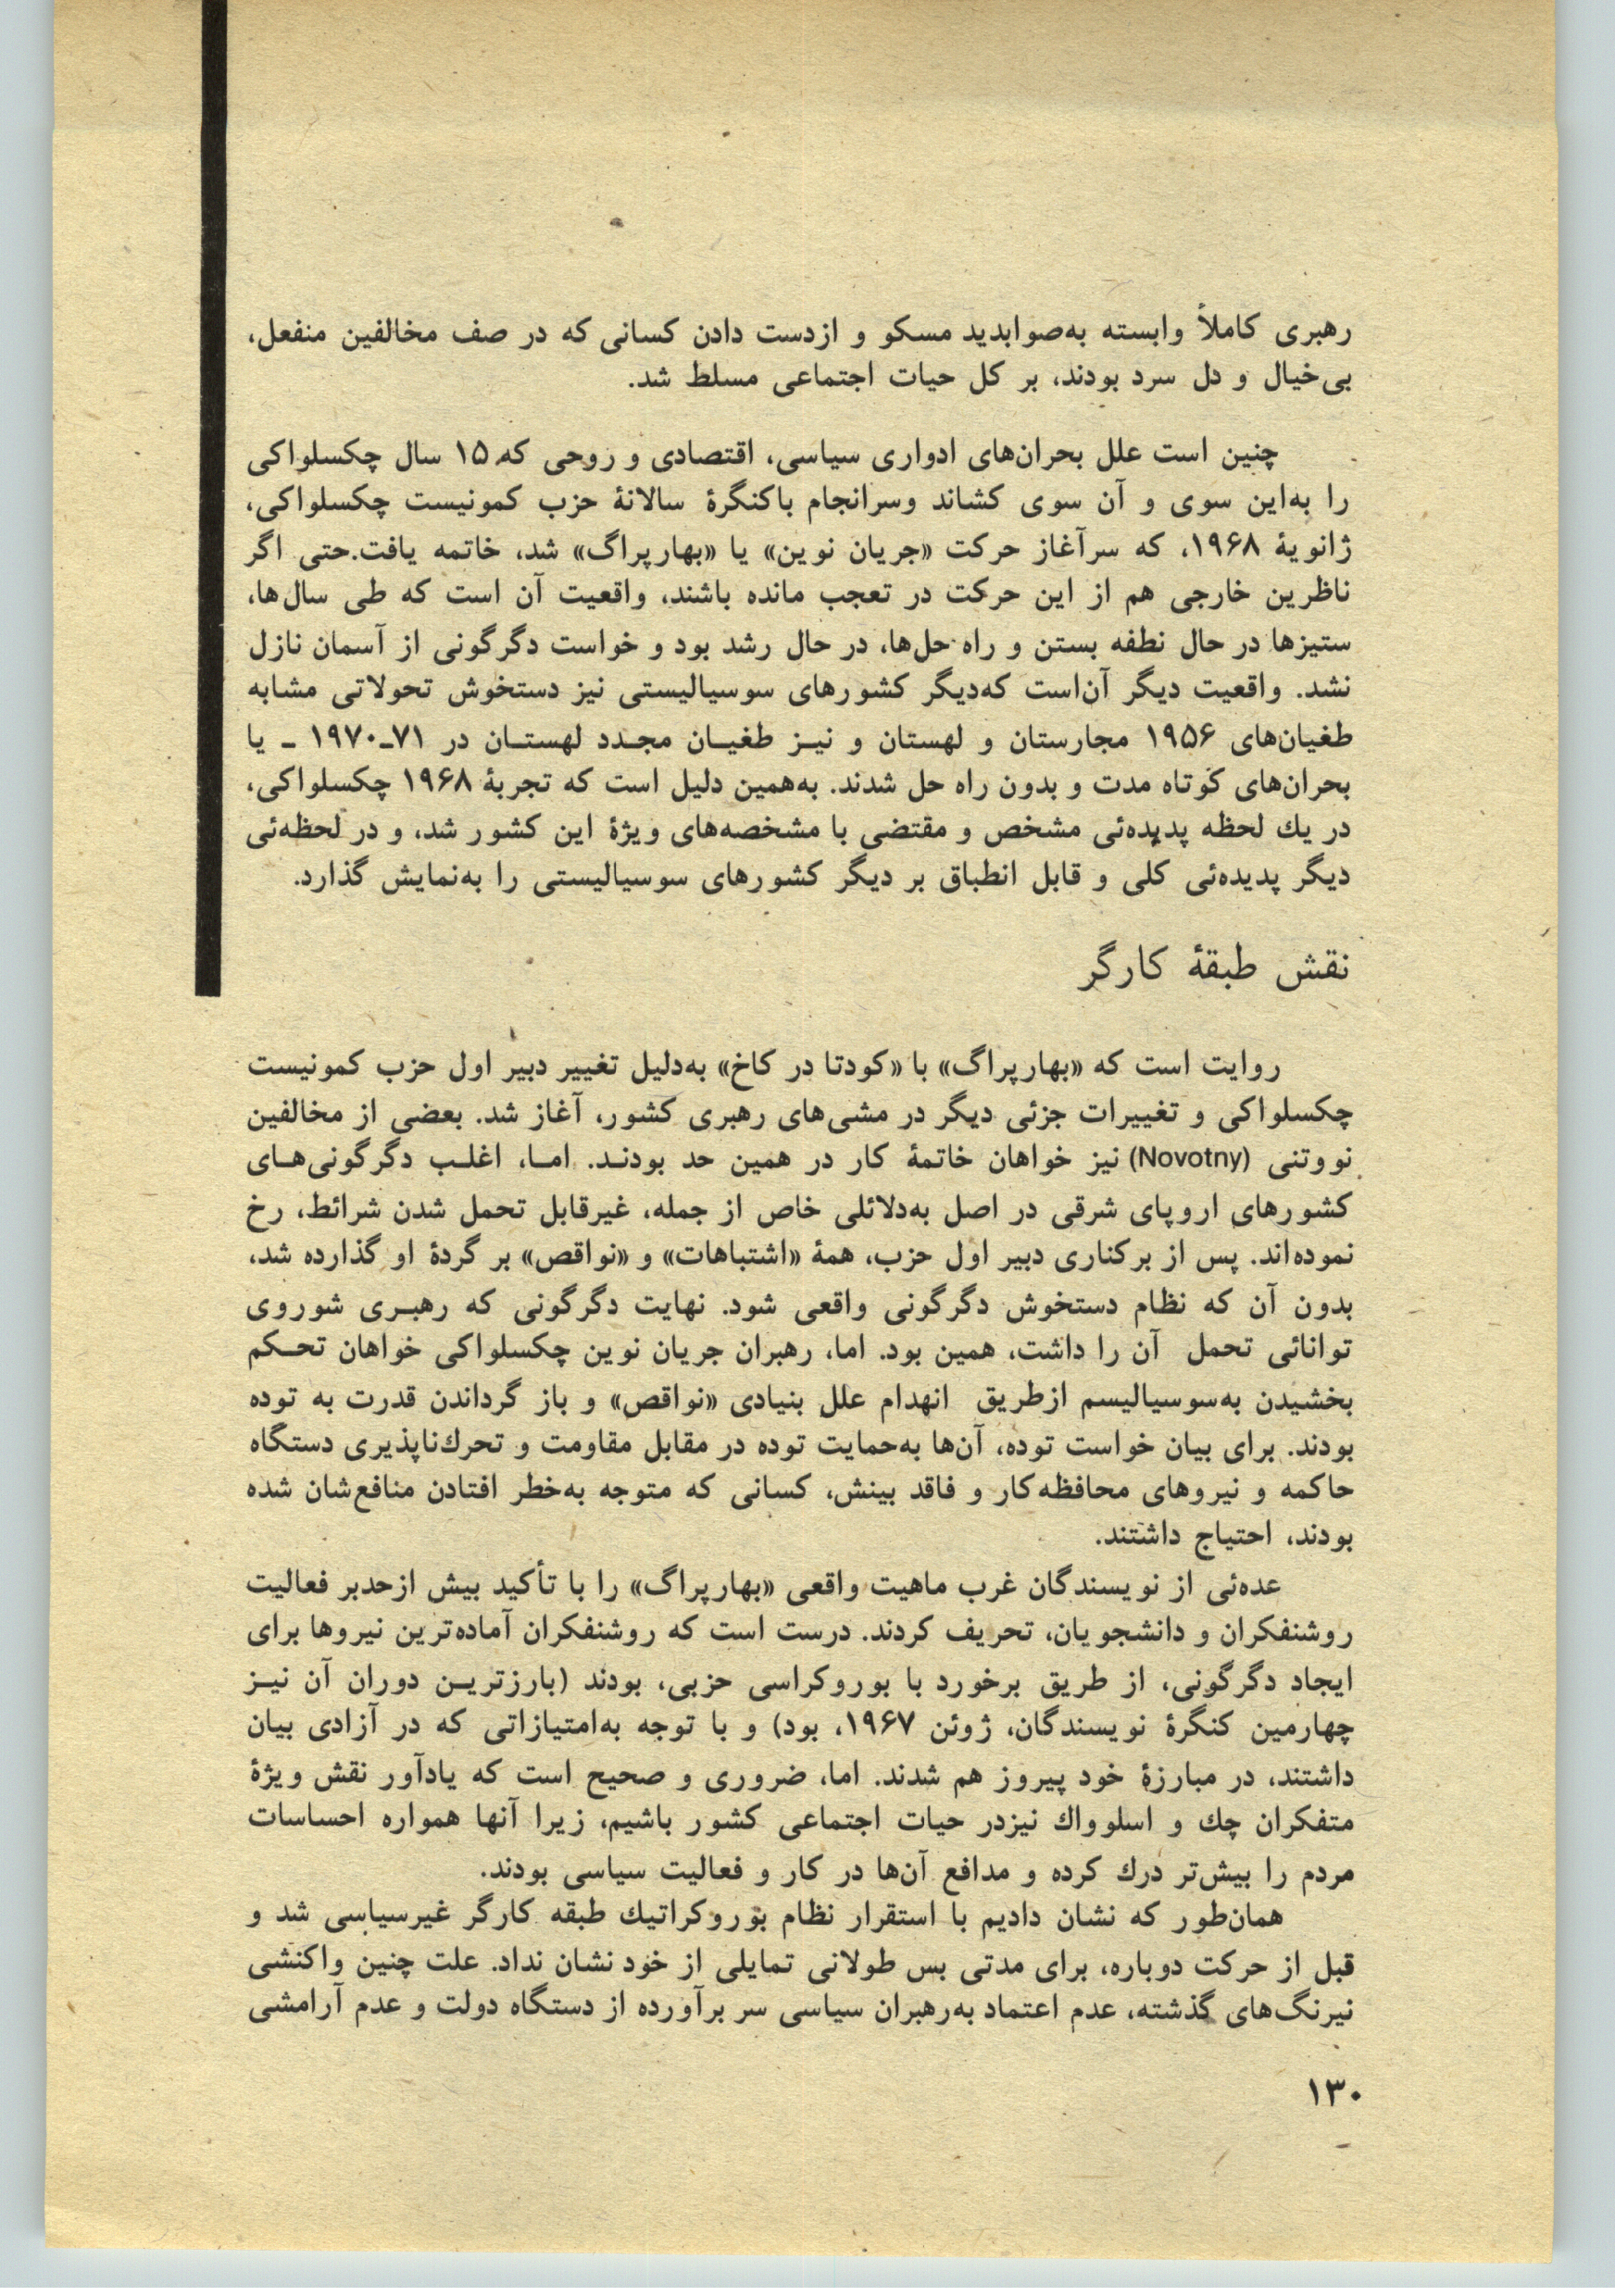 رهبری کاملاً وابسته به‌صوابدید مسکو و ازدست دادن کسانی که در صف مخالفین منفعل،
بی‌خیال و دل سرد بودند، بر کل حیات اجتماعی مسلط شد.
چنین است علل بحران‌های ادواری سیاسی، اقتصادی و روحی که ۱۵ سال چکسلواکی
را به‌این سوی و آن سوی کشاند وسرانجام باکنگرهٔ سالانهٔ حزب کمونیست چکسلواکی،
ژانویهٔ ۱۹۶۸، که سرآغاز حرکت «جریان نوین» یا «بهارپراگ» شد، خاتمه یافت.حتی اگر
ناظرین خارجی هم از این حرکت در تعجب مانده باشند، واقعیت آن است که طی سال‌ها،
ستیزها در حال نطفه بستن و راه حل‌ها، در حال رشد بود و خواست دگرگونی از آسمان نازل
نشد. واقعیت دیگر آن‌است که‌دیگر کشورهای سوسیالیستی نیز دستخوش تحولاتی مشابه
طغیان‌های ۱۹۵۶ مجارستان و لهستان و نیـز طغیـان مجـدد لهستـان در ۷۱ـ۱۹۷۰ ـ یا
بحران‌های کوتاه مدت و بدون راه حل شدند. به‌همین دلیل است که تجربهٔ ۱۹۶۸ چکسلواکی،
در یك لحظه پدیده‌ئی مشخص و مقتضی با مشخصه‌های ویژهٔ این کشور شد، و در لحظه‌ئی
دیگر پدیده‌ئی کلی و قابل انطباق بر دیگر کشورهای سوسیالیستی را به‌نمایش گذارد.
نقش طبقهٔ کارگر
روایت است که «بهارپراگ» با «کودتا در کاخ» به‌دلیل تغییر دبیر اول حزب کمونیست
چکسلواکی و تغییرات جزئی دیگر در مشی‌های رهبری کشور، آغاز شد. بعضی از مخالفین
نووتنی (Novotny) نیز خواهان خاتمهٔ کار در همین حد بودنـد. امـا، اغلـب دگرگونی‌هـای
کشورهای اروپای شرقی در اصل به‌دلائلی خاص از جمله، غیرقابل تحمل شدن شرائط، رخ
نموده‌اند. پس از برکناری دبیر اول حزب، همهٔ «اشتباهات» و «نواقص» بر گردهٔ او گذارده شد،
بدون آن که نظام دستخوش دگرگونی واقعی شود. نهایت دگرگونی که رهبـری شوروی
توانائی تحمل آن را داشت، همین بود. اما، رهبران جریان نوین چکسلواکی خواهان تحـکم
بخشیدن به‌سوسیالیسم ازطریق انهدام علل بنیادی «نواقص» و باز گرداندن قدرت به توده
بودند. برای بیان خواست توده، آن‌ها به‌حمایت توده در مقابل مقاومت و تحرك‌ناپذیری دستگاه
حاکمه و نیروهای محافظه‌کار و فاقد بینش، کسانی که متوجه به‌خطر افتادن منافع‌شان شده
بودند، احتیاج داشتند.
عده‌ئی از نویسندگان غرب ماهیت واقعی «بهارپراگ» را با تأکید بیش ازحدبر فعالیت
روشنفکران و دانشجویان، تحریف کردند. درست است که روشنفکران آماده‌ترین نیروها برای
ایجاد دگرگونی، از طریق برخورد با بوروکراسی حزبی، بودند (بارزتریـن دوران آن نیـز
چهارمین کنگرهٔ نویسندگان، ژوئن ۱۹۶۷، بود) و با توجه به‌امتیازاتی که در آزادی بیان
داشتند، در مبارزهٔ خود پیروز هم شدند. اما، ضروری و صحیح است که یادآور نقش ویژهٔ
متفکران چك و اسلوواك نیزدر حیات اجتماعی کشور باشیم، زیرا آنها همواره احساسات
مردم را بیش‌تر درك کرده و مدافع آن‌ها در کار و فعالیت سیاسی بودند.
همان‌طور که نشان دادیم با استقرار نظام بوروکراتیك طبقه کارگر غیرسیاسی شد و
قبل از حرکت دوباره، برای مدتی بس طولانی تمایلی از خود نشان نداد. علت چنین واکنشی
نیرنگ‌های گذشته، عدم اعتماد به‌رهبران سیاسی سر برآورده از دستگاه دولت و عدم آرامشی
۱۳۰